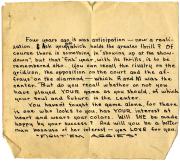 Four years ago it was anticipation — now a reali-
zation. I ask you which holds the greater thrill? Of
course there is something in "showing up at the show-
down", but that first year, with its thrills, is to be
remembered also. You can recall the rivalry on the
gridiron, the opposition on the court and the af-
frays on the diamond — which R and M was the
center. But do you recall whether or not you
have played YOUR game as you should, of which
your soul and future is the center.
You have not fought the game alone, for there
is one who looks to you has YOUR interest at
heart and wears your colors. Will SHE be made
happy by your success? And will you be a better
man because of her interest — you LOVE for you.
"FIGHT 'EM AGGIES"